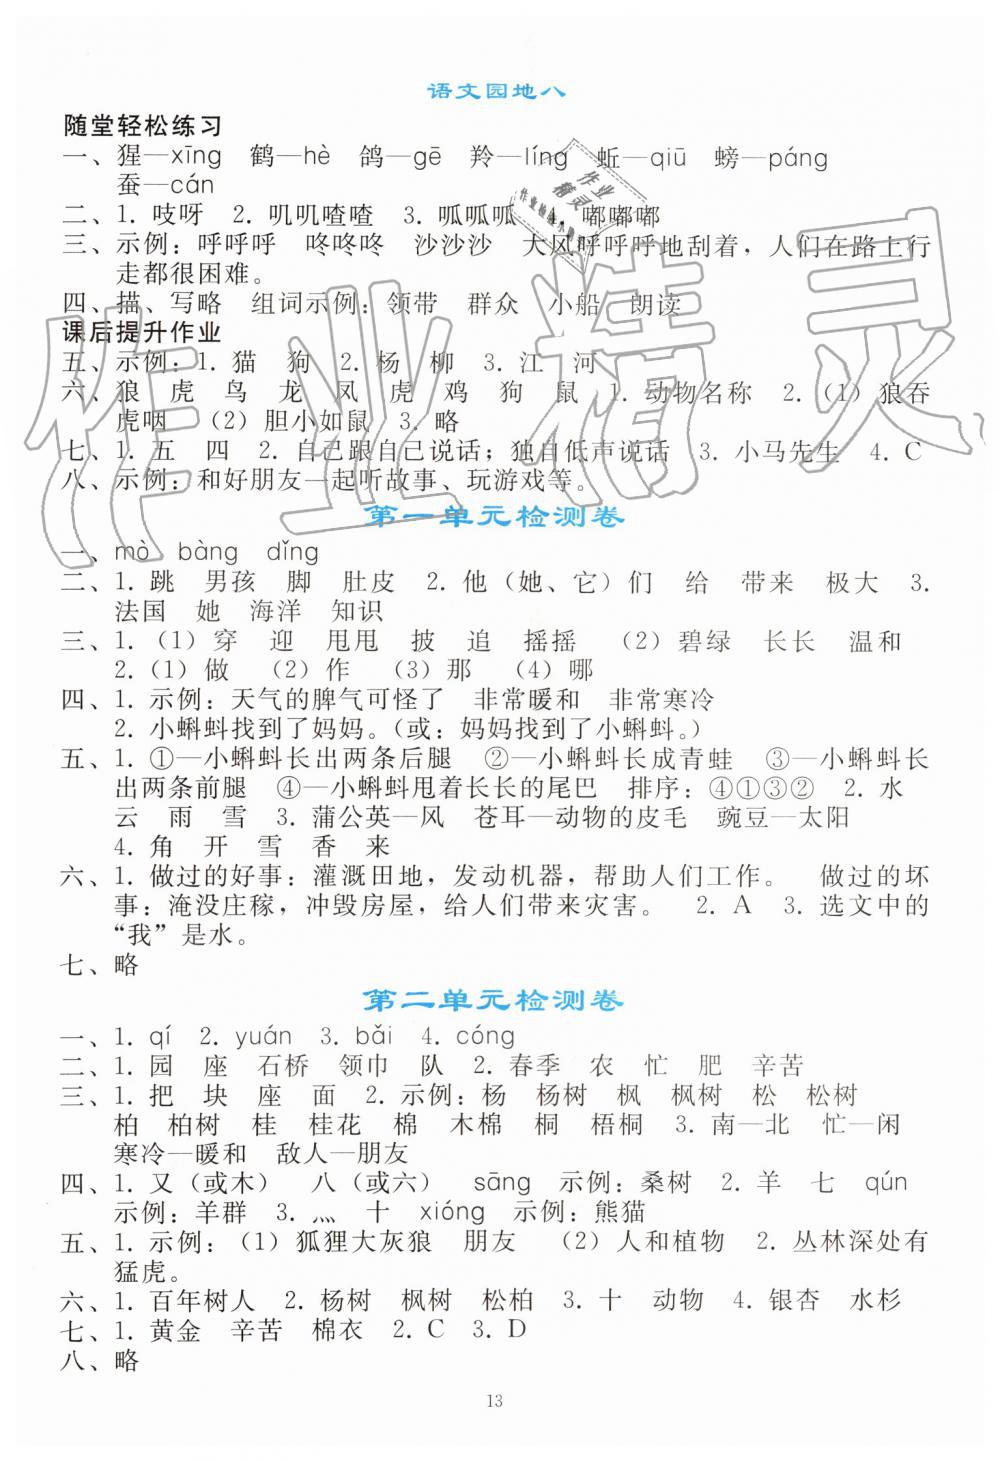 语文园地八
随堂轻松练习
一、猩—xīng 鹤—hè 鸽—gē 羚—líng 蚯—qiū 螃—páng
蚕—cán
二、1. 吱呀 2. 叽叽喳喳 3. 呱呱呱 4. 嘟嘟嘟
三、示例：呼呼呼 咚咚咚 沙沙沙 大风呼呼呼地刮着，人们在路上行
走都很困难。
四、描、写略 组词示例：领带 群众 小船 朗读
课后提升作业
五、示例：1. 猫 狗 2. 杨 柳 3. 江 河
六、狼 虎 鸟 龙 凤 虎 鸡 狗 鼠 1. 动物名称 2.（1）狼吞
虎咽 （2）胆小如鼠 3. 略
七、1. 五 四 2. 自己跟自己说话；独自低声说话 3. 小马先生 4. C
八、示例：和好朋友一起听故事、玩游戏等。
第一单元检测卷
一、mò bàng dǐng
二、1. 跳 男孩 脚 肚皮 2. 他（她、它）们 给 带来 极大 3.
法国 她 海洋 知识
三、1.（1）穿 迎 甩甩 披 追 摇摇 （2）碧绿 长长 温和
2.（1）做 （2）作 （3）那 （4）哪
四、1. 示例：天气的脾气可怪了 非常暖和 非常寒冷
2. 小蝌蚪找到了妈妈。（或：妈妈找到了小蝌蚪。）
五、1. ①—小蝌蚪长出两条后腿 ②—小蝌蚪长成青蛙 ③—小蝌蚪长
出两条前腿 ④—小蝌蚪甩着长长的尾巴 排序：④①③② 2. 水
云 雨 雪 3. 蒲公英—风 苍耳—动物的皮毛 豌豆—太阳
4. 角 开 雪 香 来
六、1. 做过的好事：灌溉田地，发动机器，帮助人们工作。 做过的坏
事：淹没庄稼，冲毁房屋，给人们带来灾害。 2. A 3. 选文中的
“我”是水。
七、略
第二单元检测卷
一、1. qí 2. yuán 3. bǎi 4. cóng
二、1. 园 座 石桥 领巾 队 2. 春季 农 忙 肥 辛苦
三、1. 把 块 座 面 2. 示例：杨 杨树 枫 枫树 松 松树
柏 柏树 桂 桂花 棉 木棉 桐 梧桐 3. 南—北 忙—闲
寒冷—暖和 敌人—朋友
四、1. 又（或木） 八（或六） sāng 示例：桑树 2. 羊 七 qún
示例：羊群 3. 灬 十 xióng 示例：熊猫
五、1. 示例：（1）狐狸大灰狼 朋友 （2）人和植物 2. 丛林深处有
猛虎。
六、1. 百年树人 2. 杨树 枫树 松柏 3. 十 动物 4. 银杏 水杉
七、1. 黄金 辛苦 棉衣 2. C 3. D
八、略
13
作业精灵